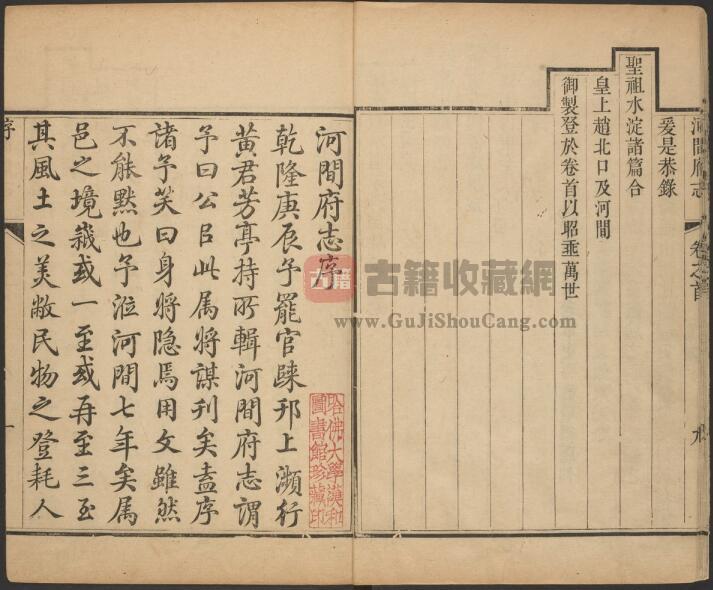 河間府志
卷之首
九
爰是恭錄
聖祖水淀諸篇合
皇上趙北口及河間
御製登於卷首以昭垂萬世
河間府志序
乾隆庚辰予罷官歸邗上瀕行
黃君芳亭持所輯河間府志謂
予曰公曰此属將謀刊矣盍序
諸予笑曰身將隐焉用文雖然
不能默也予涖河間七年矣属
邑之境嵗或一至或再至三至
其風土之美敝民物之登耗人
序
一
哈佛大學漢和
圖書館珍藏印
古籍
古籍收藏網
www.GuJiShouCang.com